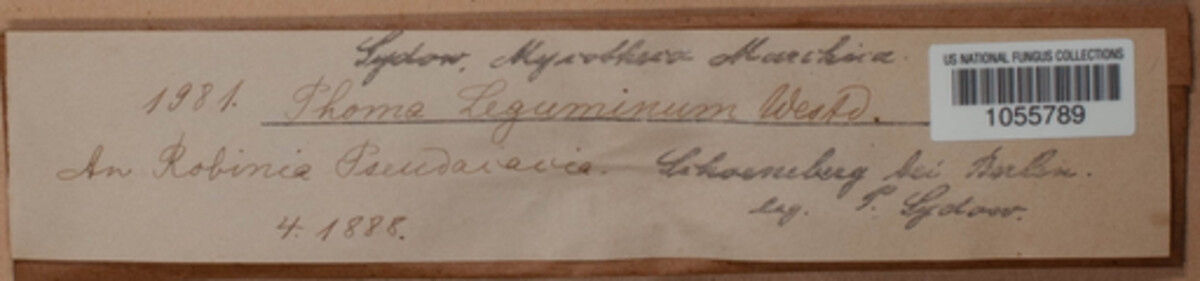 Sydow, Mycotheca Marchica.
US NATIONAL FUNGUS COLLECTIONS
1055789
1981. Phoma Leguminum Westd.
An Robinia Pseudacacia. Schoeneberg bei Berlin.
leg. P. Sydow.
4. 1888.